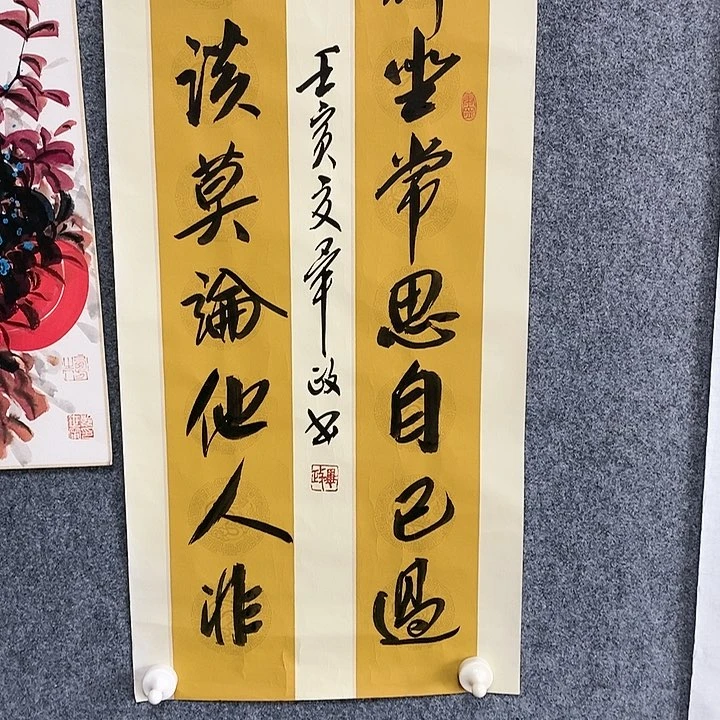 坐常思自己過
談莫論他人非
壬寅畢政书